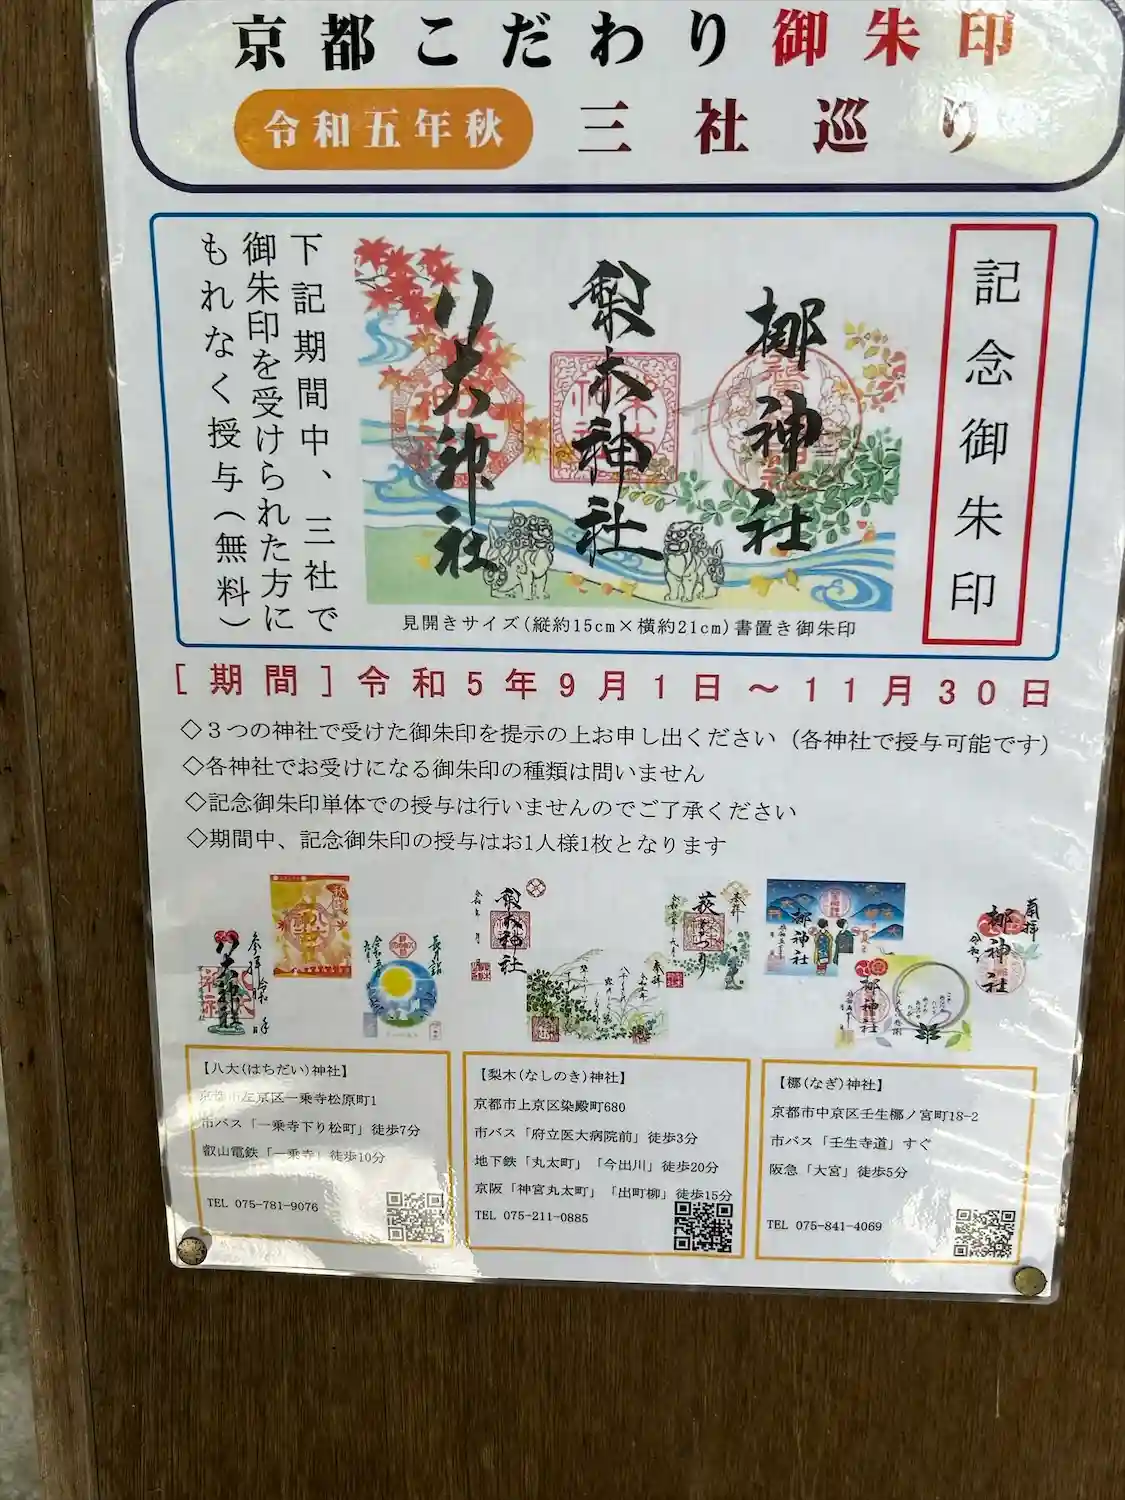 京都こだわり御朱印
令和五年秋 三社巡り
記念御朱印
梛神社
梨木神社
八大神社
下記期間中、三社で
御朱印を受けられた方に
もれなく授与(無料)
見開きサイズ(縦約15cm×横約21cm)書置き御朱印
[期間]令和5年9月1日~11月30日
◇3つの神社で受けた御朱印を提示の上お申し出ください(各神社で授与可能です)
◇各神社でお受けになる御朱印の種類は問いません
◇記念御朱印単体での授与は行いませんのでご了承ください
◇期間中、記念御朱印の授与はお1人様1枚となります
八大神社
梨木神社
奉拝
萩まつり
梛神社
梛神社
梛神社
奉拝
【八大(はちだい)神社】
京都市左京区一乗寺松原町1
市バス「一乗寺下り松町」徒歩7分
叡山電鉄「一乗寺」徒歩10分
TEL 075-781-9076
【梨木(なしのき)神社】
京都市上京区染殿町680
市バス「府立医大病院前」徒歩3分
地下鉄「丸太町」「今出川」徒歩20分
京阪「神宮丸太町」「出町柳」徒歩15分
TEL 075-211-0885
【梛(なぎ)神社】
京都市中京区壬生梛ノ宮町18-2
市バス「壬生寺道」すぐ
阪急「大宮」徒歩5分
TEL 075-841-4069